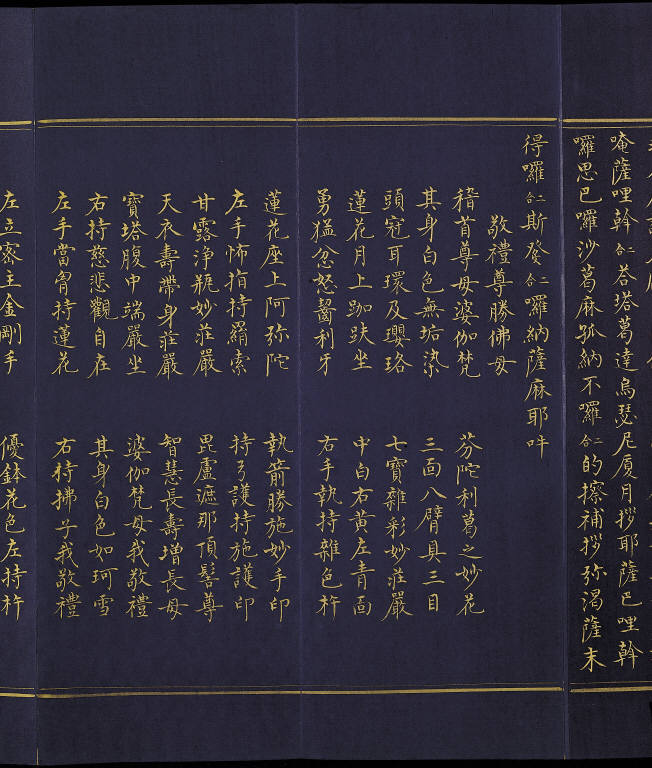 唵薩哩斡二合荅塔葛達烏瑟尼厦月拶耶薩巴哩斡
囉思巴囉沙葛麻孤納不囉二合的擦補拶弥渴薩末
得囉二合斯癹二合囉納薩麻耶吽
敬禮尊勝佛母
稽首尊母婆伽梵 芬陀利葛之妙花
其身白色無垢染 三面八臂具三目
頭冠耳環及瓔珞 七寶雜彩妙莊嚴
蓮花月上跏趺坐 中白右黃左青面
勇猛忿怒齧利牙 右手執持雜色杵
蓮花座上阿弥陀 執箭勝施妙手印
左手怖指持羂索 持弓護持施護印
甘露淨瓶妙莊嚴 毘盧遮那頂髻尊
天衣壽帶身莊嚴 智慧長壽增長母
寶塔腹中端嚴坐 婆伽梵母我敬禮
右持慈悲觀自在 其身白色如珂雪
左手當胷持蓮花 右持拂子我敬禮
左立密主金剛手 優鉢花色左持杵